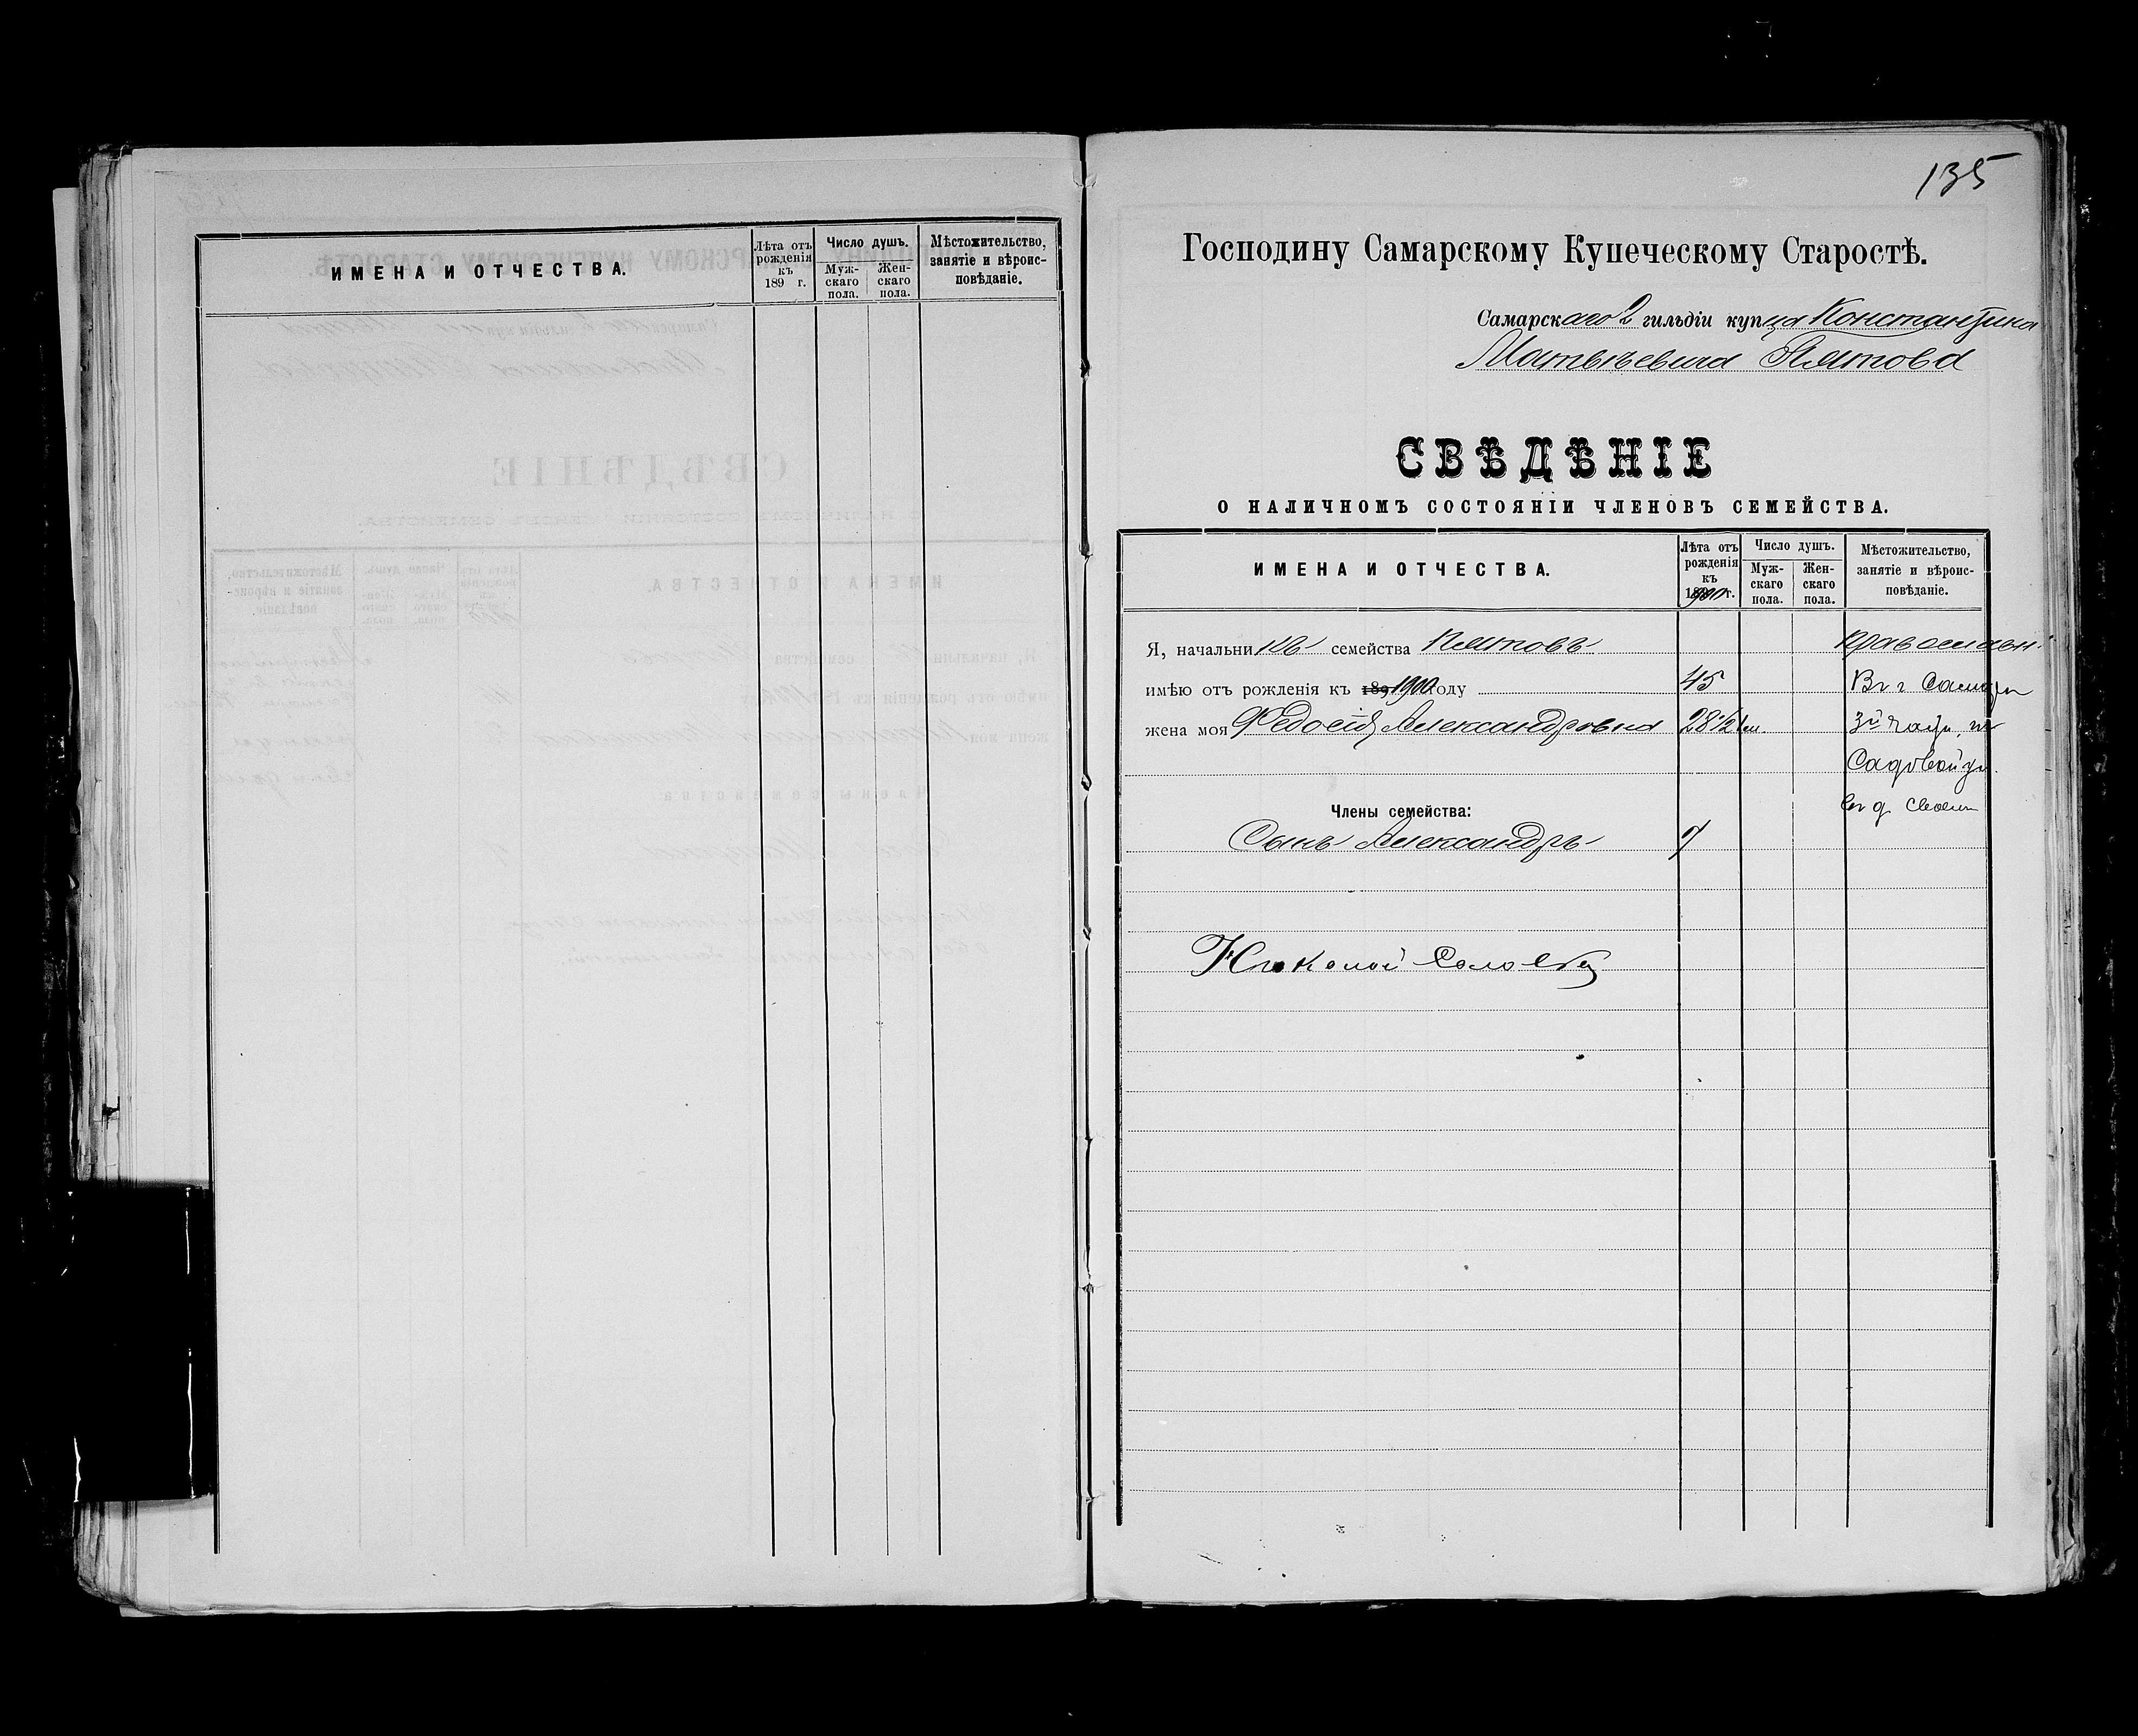 ИМЕНА И ОТЧЕСТВА.
Лѣта отъ рожденія къ 189 г.
Число душъ.
Мужскаго пола.
Женскаго пола.
Мѣстожительство, занятіе и вѣроисповѣданіе.
135
Господину Самарскому Купеческому Старостѣ.
Самарскаго 2 гильдіи купца Константина
Матвѣевича Пятова
СВѢДѢНІЕ
О НАЛИЧНОМЪ СОСТОЯНІИ ЧЛЕНОВЪ СЕМЕЙСТВА.
ИМЕНА И ОТЧЕСТВА.
Лѣта отъ рожденія къ 1900 г.
Число душъ.
Мужскаго пола.
Женскаго пола.
Мѣстожительство, занятіе и вѣроисповѣданіе.
Я, начальникъ семейства Пятовъ Православн.
имѣю отъ рожденія къ 1900 году 45 Въ г Самарѣ
жена моя Федосія Александровна 28 1/2 3й части, по
Садовой ул.
Члены семейства: въ д. своем
Сынъ Александръ 7